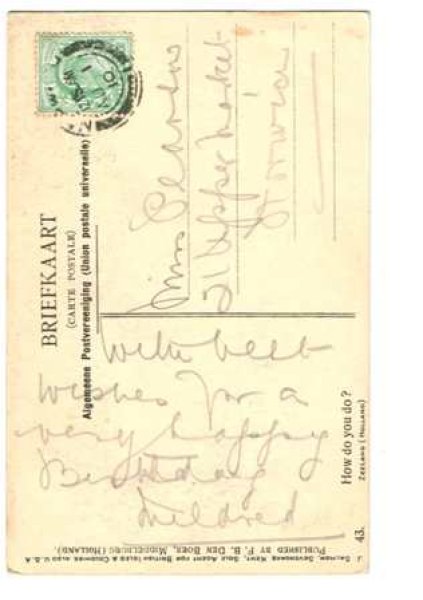 BRIEFKAART
(CARTE POSTALE)
Algemeene Postvereeniging (Union postale universelle)
Miss
21 Upper Market
Norwich
With best
wishes for a
very happy
Birthday
Mildred
How do you do?
ZEELAND (HOLLAND)
43.
PUBLISHED BY F. B. DEN BOER, MIDDELBURG (HOLLAND).
J. SALMON, SEVENOAKS, KENT, SOLE AGENT FOR BRITISH ISLES & COLONIES ALSO U.S.A